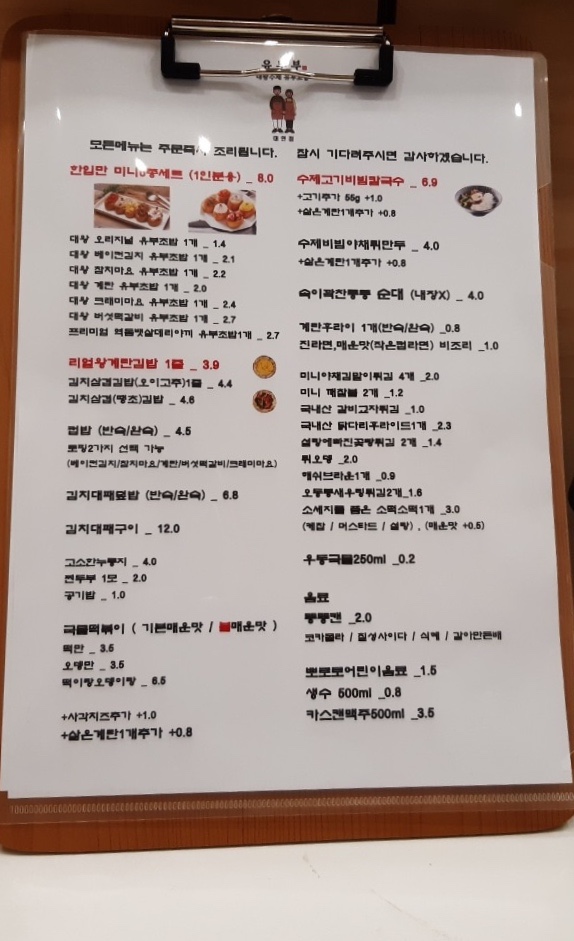 유부부
대왕수제 유부초밥
대연점
모든메뉴는 주문즉시 조리됩니다. 잠시 기다려주시면 감사하겠습니다.
한입만 미니6종세트 (1인분용) _ 8.0
대왕 오리지널 유부초밥 1개 _ 1.4
대왕 베이컨김치 유부초밥 1개 _ 2.1
대왕 참치마요 유부초밥 1개 _ 2.2
대왕 계란 유부초밥 1개 _ 2.0
대왕 크래미마요 유부초밥 1개 _ 2.4
대왕 버섯떡갈비 유부초밥 1개 _ 2.7
프리미엄 역돔뱃살데리야끼 유부초밥1개 _ 2.7
리얼왕계란김밥 1줄 _ 3.9
김치삼겹김밥(오이고추)1줄 _ 4.4
김치삼겹(땡초)김밥 _ 4.6
컵밥 (반숙/완숙) _ 4.5
토핑2가지 선택 가능
(베이컨김치/참치마요/계란/버섯떡갈비/크래미마요)
김치대패덮밥 (반숙/완숙) _ 6.8
김치대패구이 _ 12.0
고소한누룽지 _ 4.0
찐두부 1모 _ 2.0
공기밥 _ 1.0
국물떡볶이 ( 기본매운맛 / 불매운맛 )
떡만 _ 3.5
오뎅만 _ 3.5
떡이랑오뎅이랑 _ 6.5
+사각치즈추가 +1.0
+삶은계란1개추가 +0.8
수제고기비빔칼국수 _ 6.9
+고기추가 55g +1.0
+삶은계란1개추가 +0.8
수제비빔야채튀만두 _ 4.0
+삶은계란1개추가 +0.8
속이꽉찬통통 순대 (내장X) _ 4.0
계란후라이 1개(반숙/완숙) _0.8
진라면,매운맛(작은컵라면) 비조리 _1.0
미니야채김말이튀김 4개 _2.0
미니 깨찰볼 2개 _1.2
국내산 갈비교자튀김 _1.0
국내산 닭다리후라이드1개 _2.3
설탕에빠진꽃빵튀김 2개 _1.4
튀오뎅 _2.0
해쉬브라운1개 _0.9
오동통새우링튀김2개_1.6
소세지를 품은 소떡소떡1개 _3.0
(케찹 / 머스타드 / 설탕) , (매운맛 +0.5)
우동국물250ml _0.2
음료
뚱뚱캔 _2.0
코카콜라 / 칠성사이다 / 식혜 / 갈아만든배
뽀로로어린이음료 _1.5
생수 500ml _0.8
카스캔맥주500ml _3.5